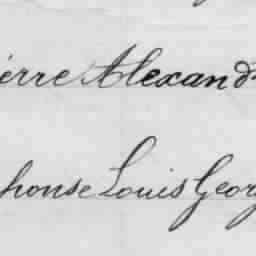 ierre Alexand
phonse Louis Georg